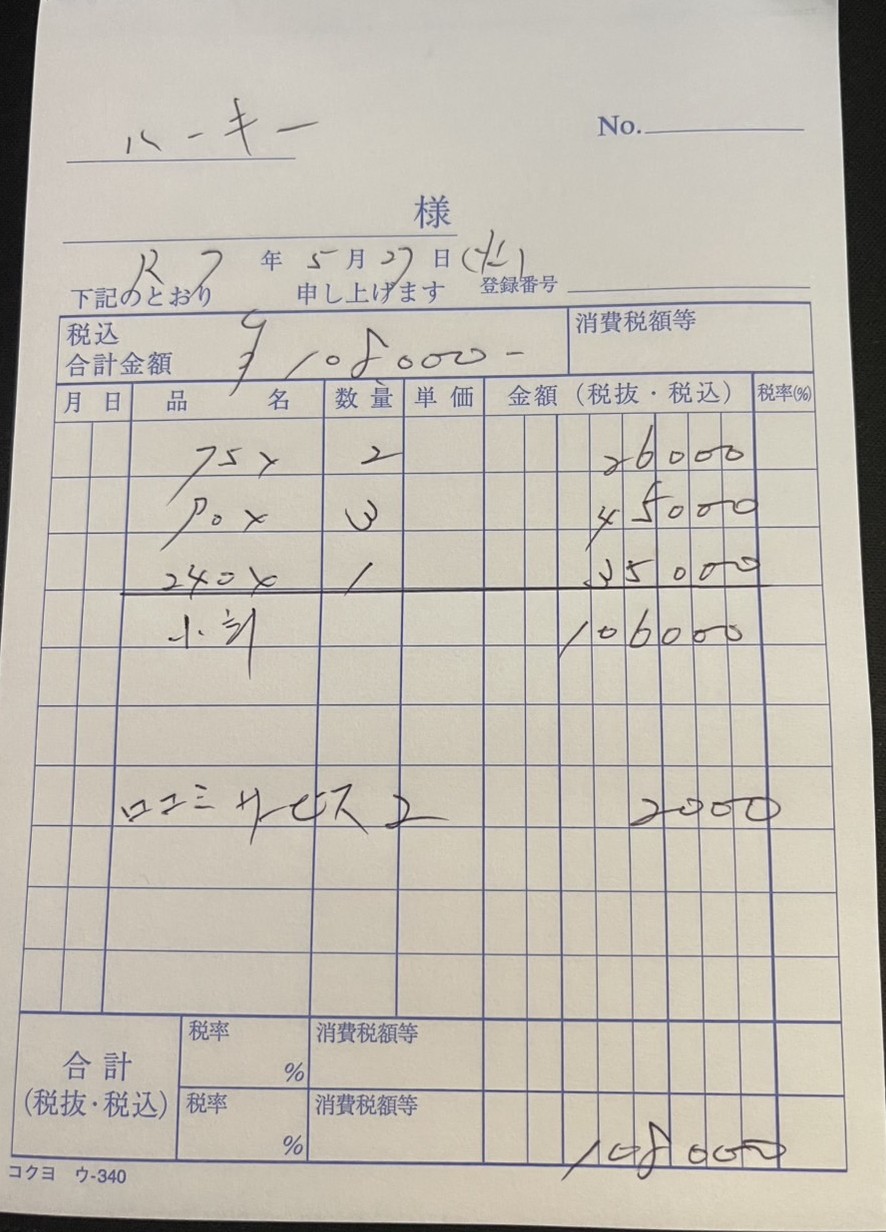 ルーキー
No.
様
R7年5月27日(火)
下記のとおり 申し上げます 登録番号
税込
合計金額 ¥108000- 消費税額等
月 日 品 名 数量 単価 金額（税抜・税込） 税率(%)
75× 2 26000
90× 3 45000
240× 1 35000
小計 106000
口コミサービス 2 2000
合計
(税抜・税込)
税率 % 消費税額等
税率 % 消費税額等
108000
コクヨ ウ-340